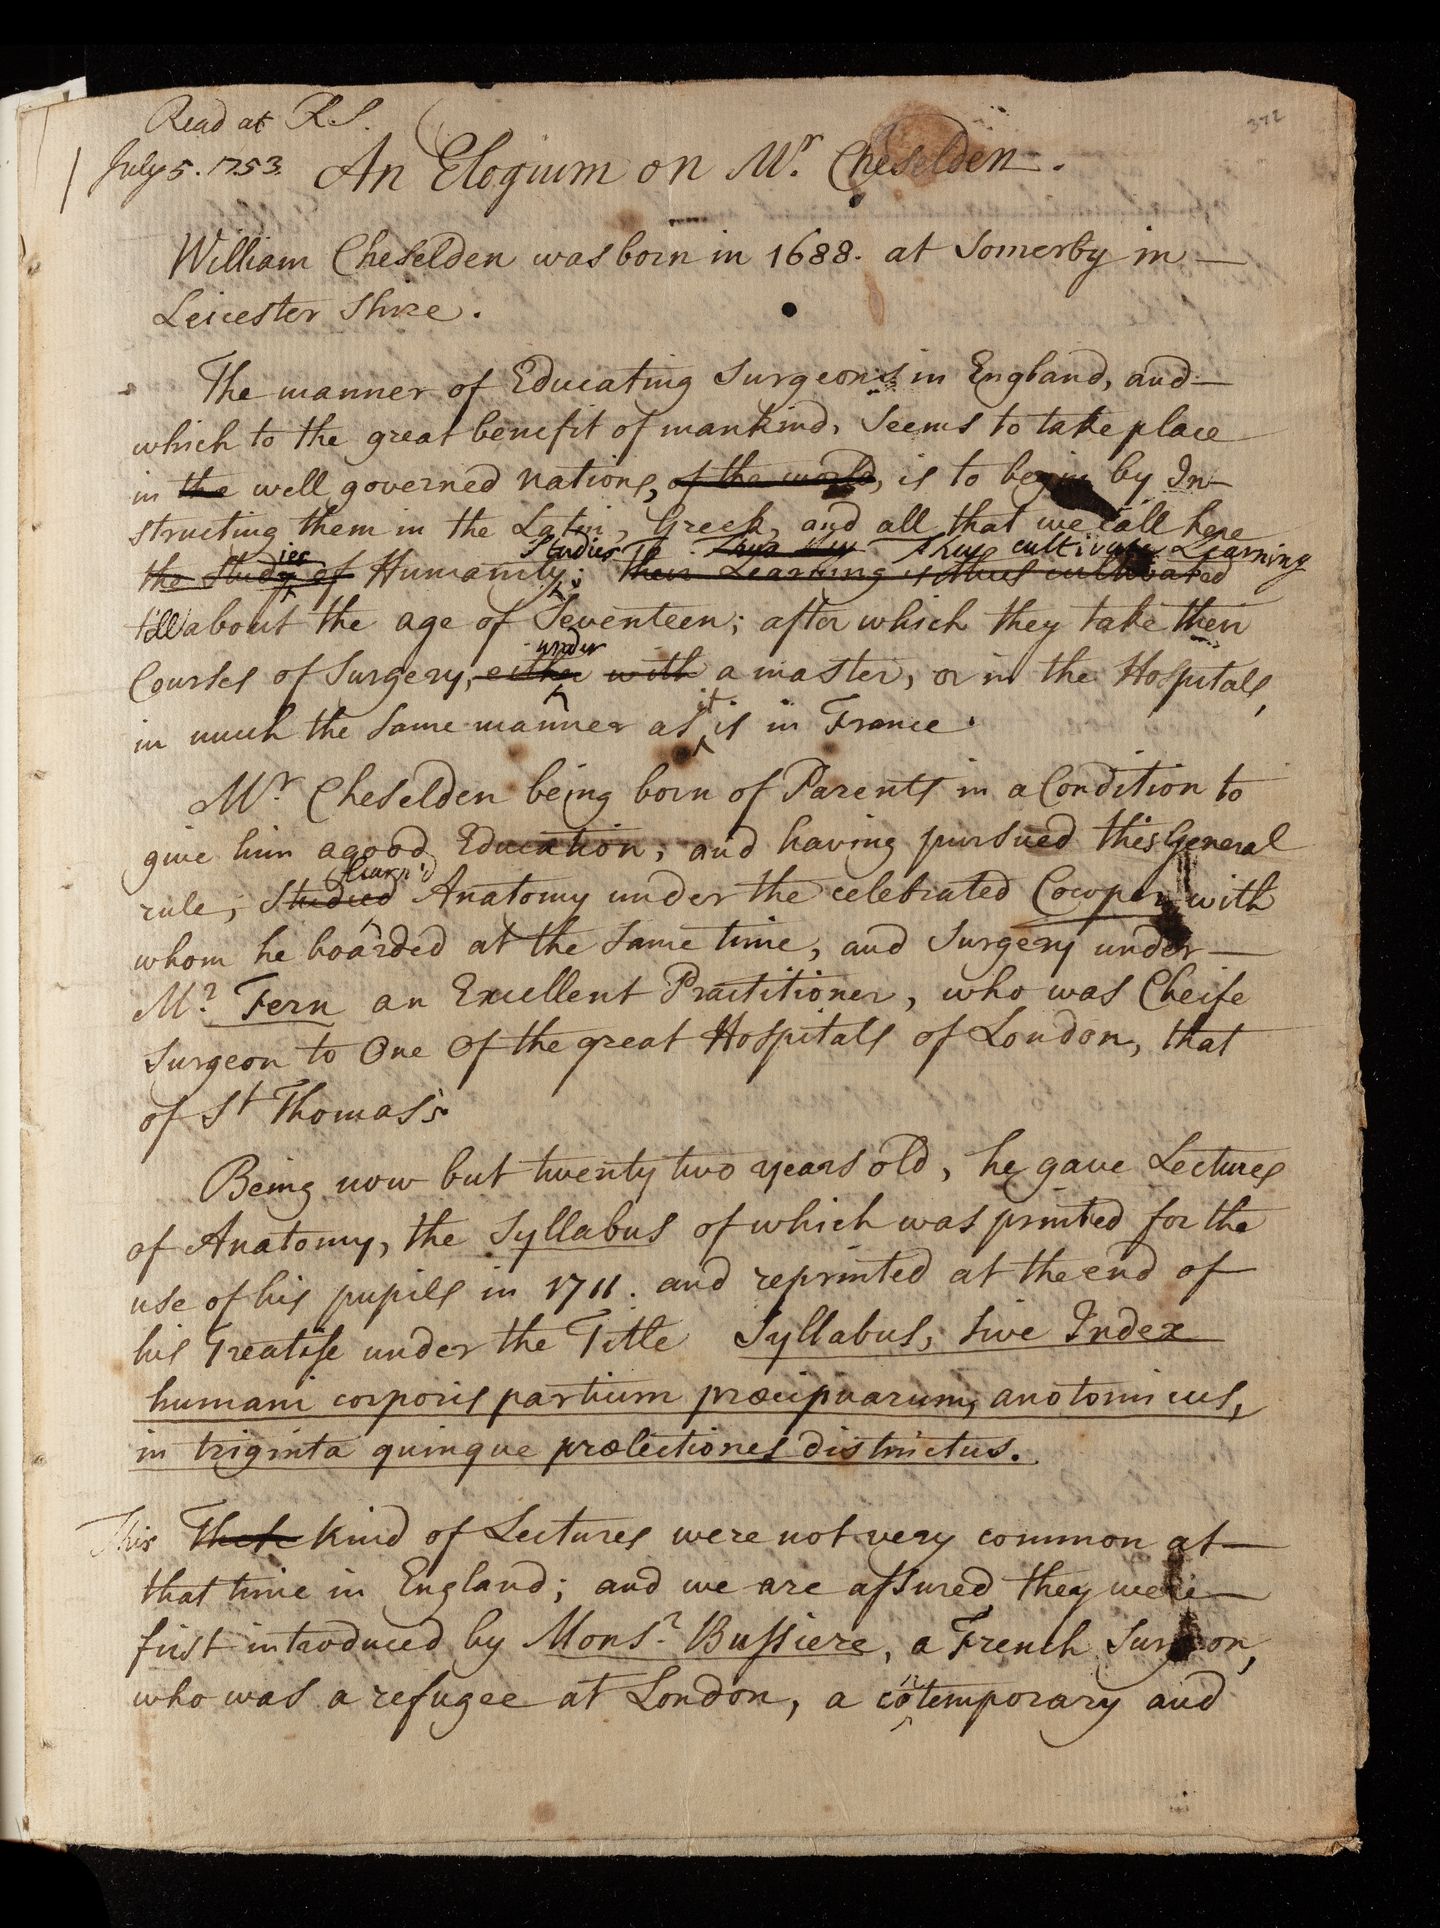 372
Read at R.S.
July 5. 1753. An Elogium on Mr. Cheselden.
William Cheselden was born in 1688. at Somerby in
Leicester Shire.
The manner of Educating Surgeons in England, and
which to the great benefit of mankind, Seems to take place
in the well governed nations, of the world, is to begin by In-
structing them in the Latin, Greek, and all that we call here
ies Studies To They cultivate Learning
the Study of Humanity; Their Learning is thus cultivated
till about the age of Seventeen; after which they take their
under
Courses of Surgery, either with a master, or in the Hospitals,
it
in much the Same manner as is in France.
Mr. Cheselden being born of Parents in a Condition to
give him a good Education, and having pursued this General
learn'd
rule, Studied Anatomy under the celebrated Cowper, with
whom he boarded at the Same time, and Surgery under
Mr. Fern an Excellent Practitioner, who was Cheife
Surgeon to One Of the great Hospitals of London, that
of St Thomas's.
Being now but twenty two years old, he gave Lectures
of Anatomy, the Syllabus of which was printed for the
use of his pupils in 1711. and reprinted at the end of
his Treatise under the Title Syllabus, Sive Index
humani corporis partium præcipuarum, anatomicus,
in triginta quinque prælectiones distinctus.
This kind of Lectures were not very common at
that time in England; and we are assured they were
first introduced by Monsr. Bussiere, a French Surgeon,
n
who was a refugee at London, a cotemporary and